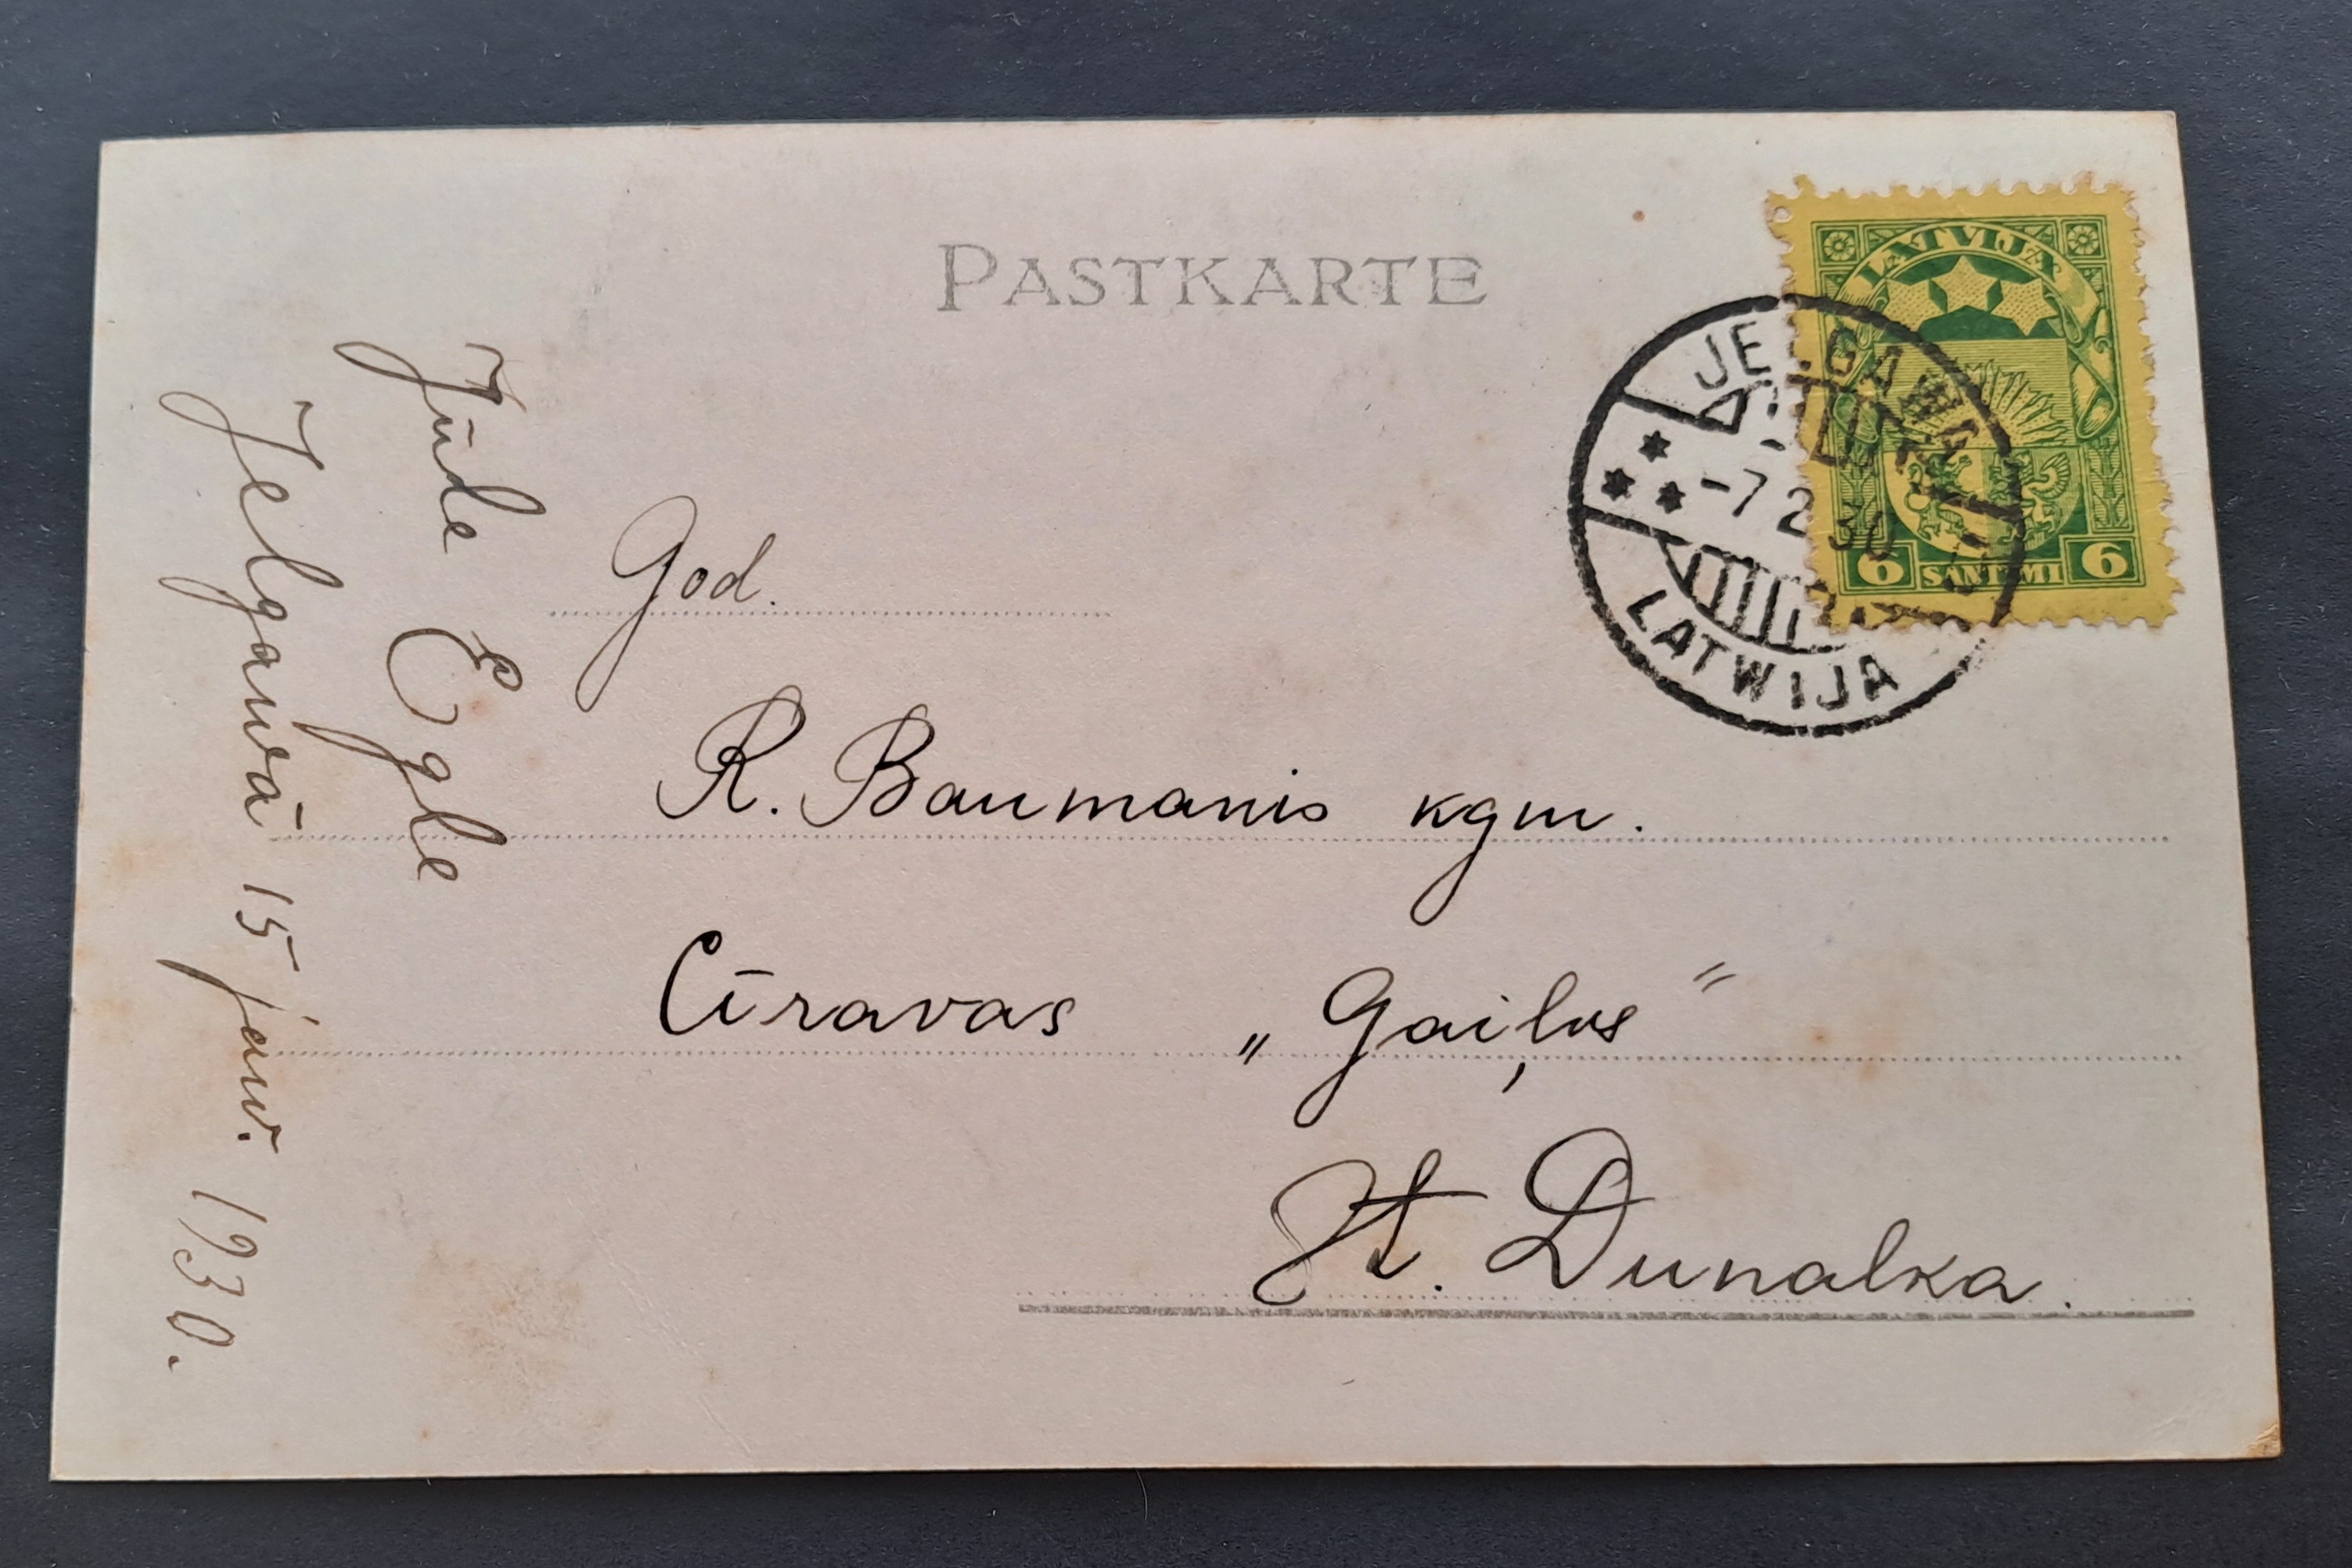 PASTKARTE
LATVIJA
6 SANTIMI 6
JELGAWA
-7 2 30
LATWIJA
God.
R. Baumanis kgm.
Cīravas „Gaiļos"
St. Dunalka.
Jūde Egle
Jelgawā 15 janw. 1930.